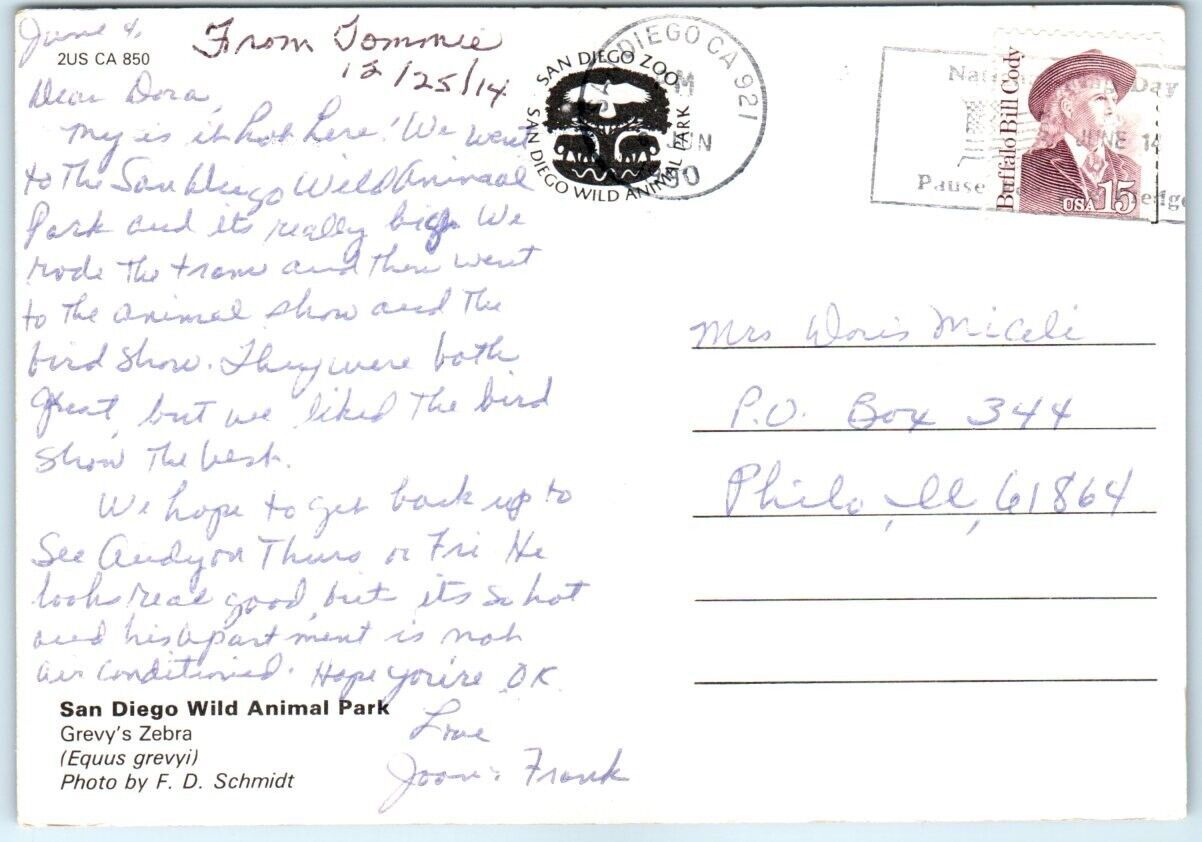 June 4,
2US CA 850
From Tommie
12/25/14
Dear Dora,
My is it hot here! We went
to The San Diego Wild Animaal
Park and its really big. We
rode The tram and then went
to The animal show and The
bird show. They were both
great, but we liked The bird
show The best.
We hope to get back up to
See Andy on Thurs or Fri He
looks real good, but its so hot
and his apartment is not
air conditioned. Hope you're OK.
Love
Joan & Frank
San Diego Wild Animal Park
Grevy's Zebra
(Equus grevyi)
Photo by F. D. Schmidt
SAN DIEGO ZOO
SAN DIEGO WILD ANIMAL PARK
DIEGO CA 921
M
JUN
90
Day
JUNE 14
Pause
Buffalo Bill Cody
USA 15
Mrs Doris Miceli
P.O. Box 344
Philo, Ill, 61864